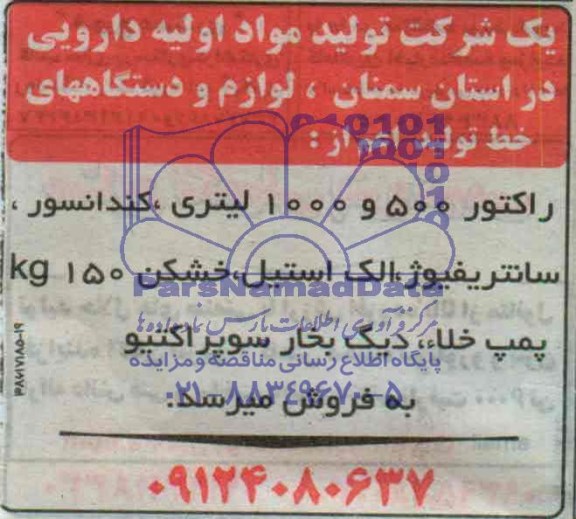 یک شرکت تولید مواد اولیه دارویی
در استان سمنان ، لوازم و دستگاههای
خط تولید اعم از :
راکتور ۵۰۰ و ۱۰۰۰ لیتری ،کندانسور ،
سانتریفیوژ،الک استیل،خشکن ۱۵۰ kg
ParsNamadData
مرکز فرآوری اطلاعات پارس نماد داده ها
پمپ خلاء، دیگ بخار سوپر اکتیو
پایگاه اطلاع رسانی مناقصه و مزایده
به فروش میرسد:
۰۲۱-۸۸۳۴۹۶۷۰-۵
۰۹۱۲۴۰۸۰۶۳۷